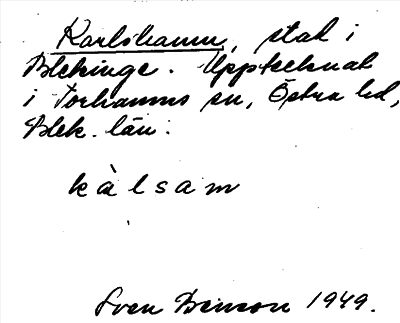 Karlshamn, stad i
Blekinge. Upptecknat
i Torhamns sn, Östra hd,
Blek. län:
kàlsam
Sven Benson 1949.